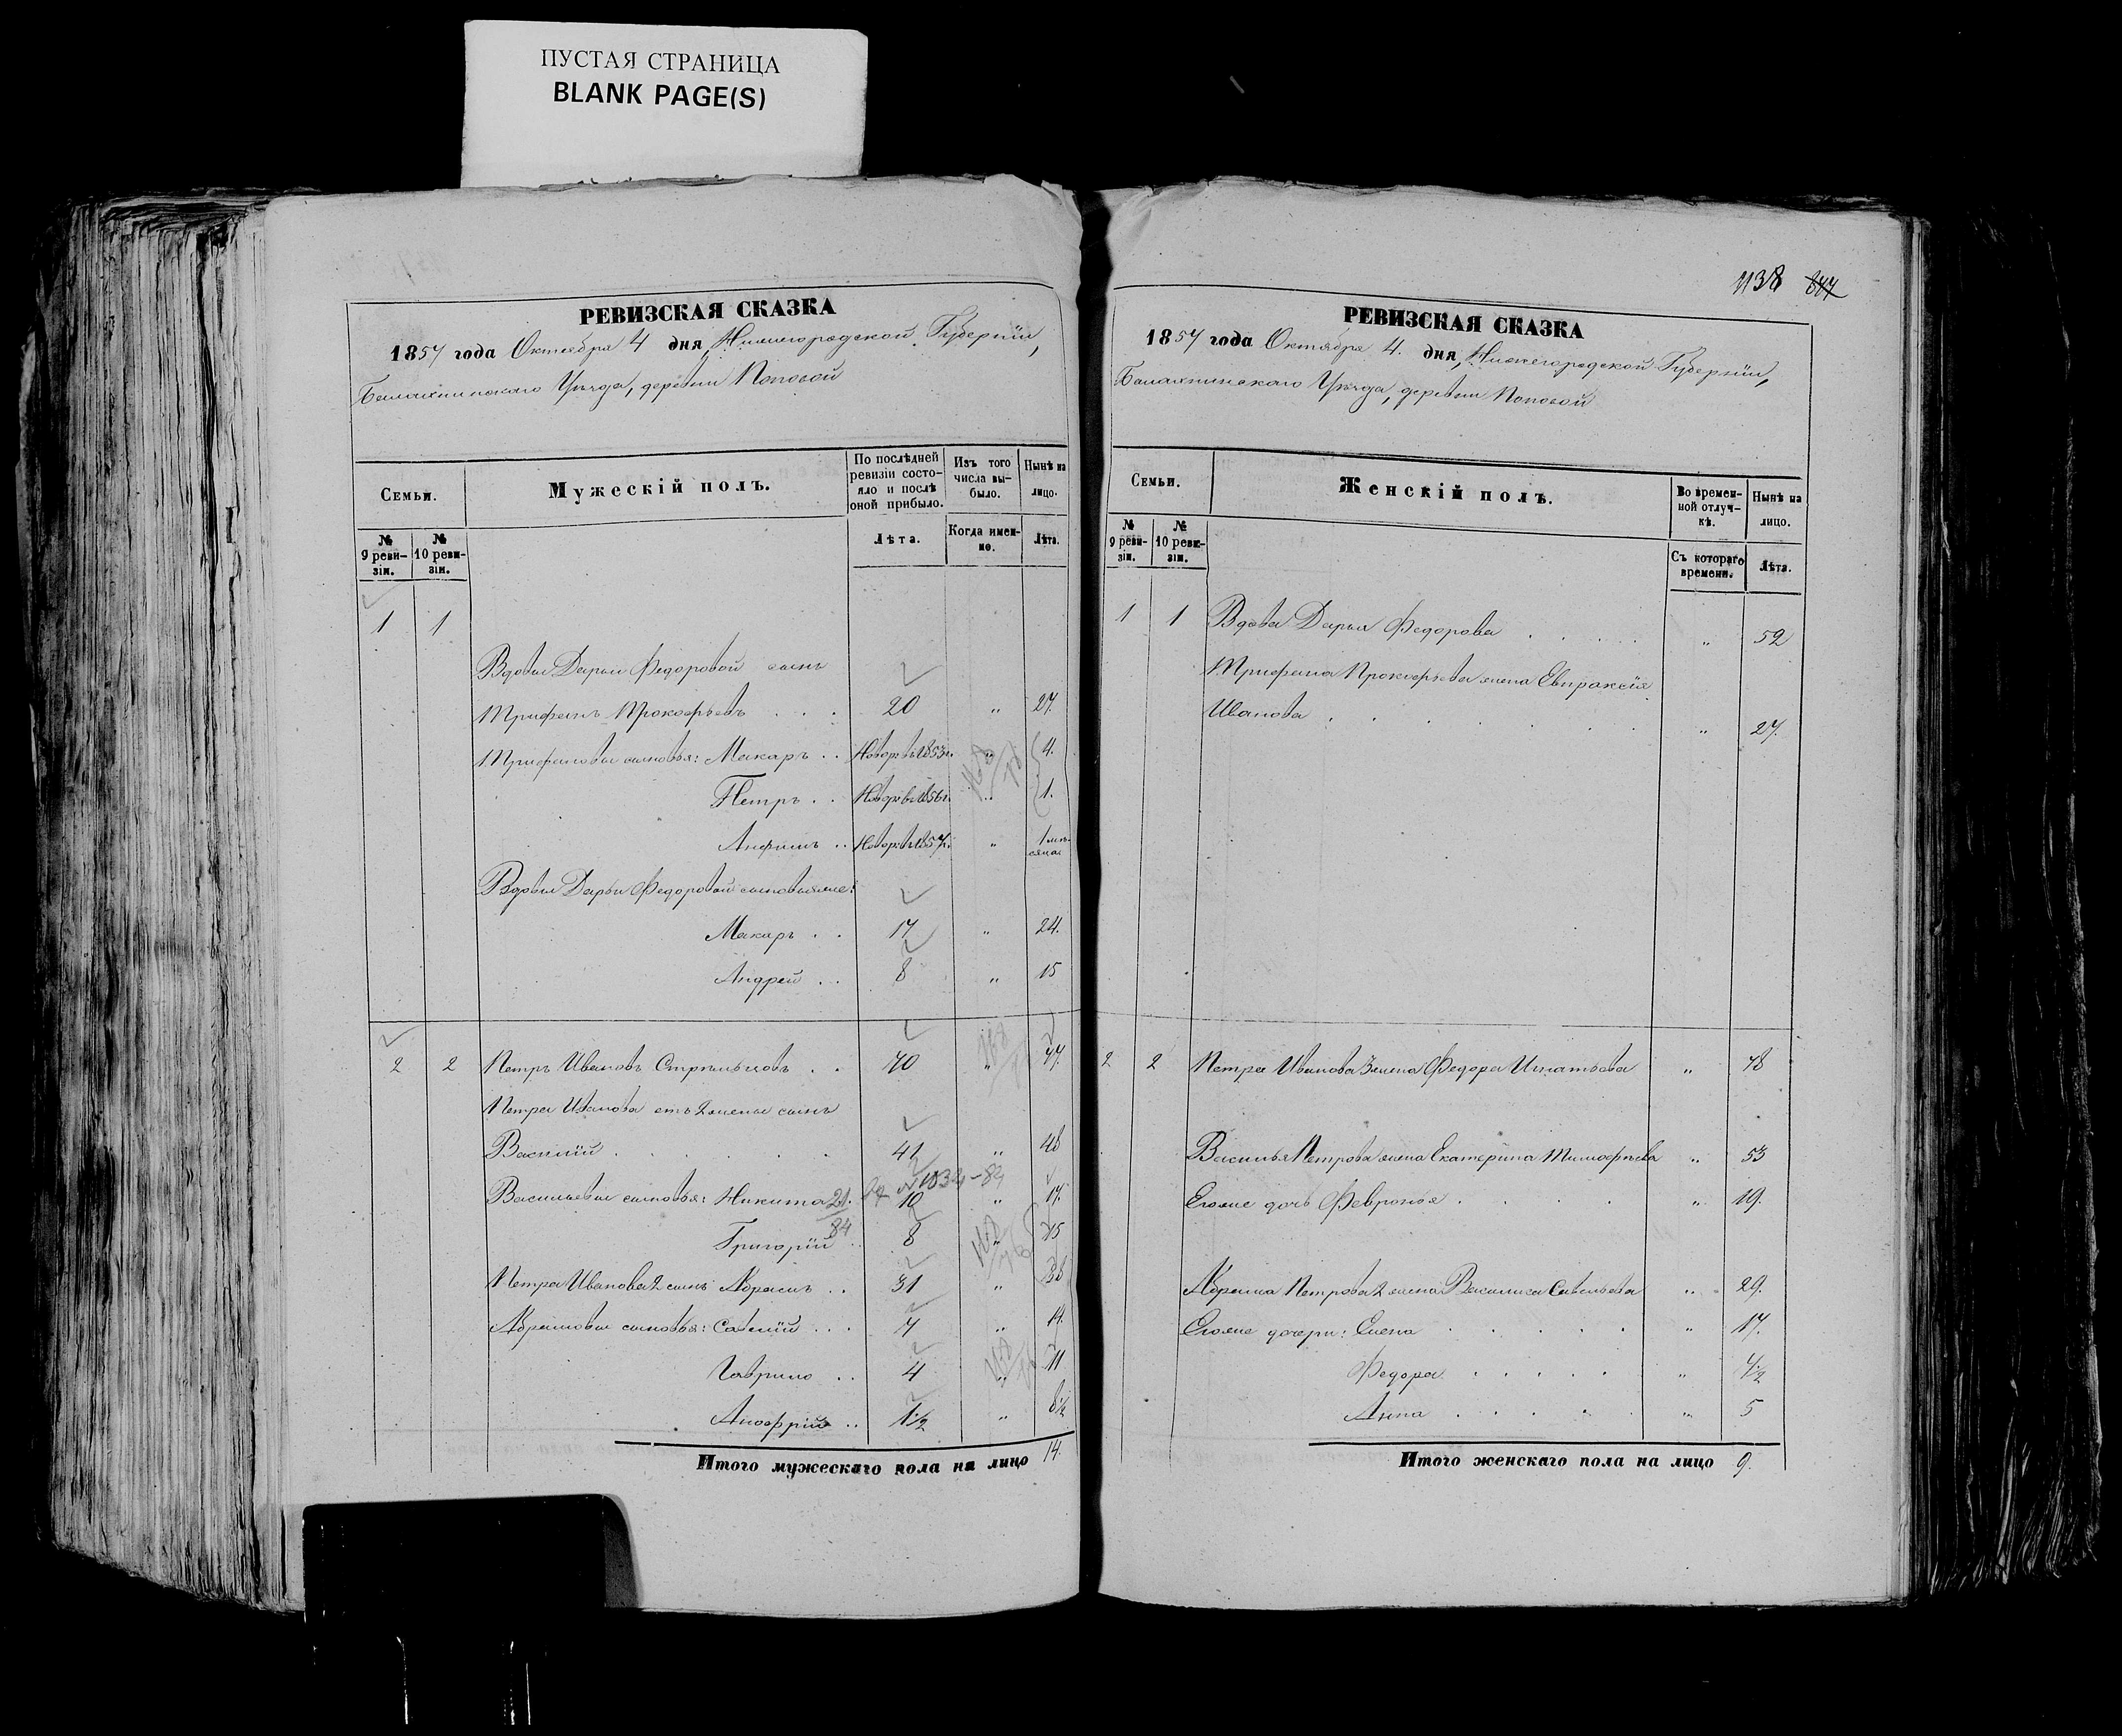 ПУСТАЯ СТРАНИЦА
BLANK PAGE(S)
РЕВИЗСКАЯ СКАЗКА
1857 года Октября 4 дня, Нижегородской Губерніи,
Балахнинскаго Уѣзда, деревни Поповой
Семьи.
Мужескій полъ.
По послѣдней ревизіи состояло и послѣ оной прибыло.
Изъ того числа выбыло.
Нынѣ на лицо.
№ 9 ревизіи.
№ 10 ревизіи.
Лѣта.
Когда именно.
Лѣта.
1 1
Вдовы Дарьи Федоровой сынъ
Трифанъ Прокофьевъ . . . 20 „ 27.
Трифановы сыновья: Макаръ . . Новорж. въ 1853 г. „ 4.
Петръ . . Новорж. въ 1856 г. „ 1.
Анфимъ . . Новорж. въ 1857 г. „ 1 мѣсяца
Вдовы Дарьи Федоровой сыновья же:
Макаръ . . 17 „ 24.
Андрей . . 8 „ 15
2 2 Петръ Ивановъ Стрѣльцовъ . . 70 „ 77.
Петра Иванова отъ 2 жены сынъ
Василій . . . . . . 41 „ 48
Васильевы сыновья: Никита 10 „ 17.
Григорій . . 8 „ 15
Петра Иванова 2 сынъ Абрамъ . . 31 „ 38
Абрамовы сыновья: Савелій . . . 7 „ 14.
Гаврило . . 4 „ 11
Аноофрій . . 1½ „ 8½
Итого мужескаго пола на лицо 14.
1138 847
РЕВИЗСКАЯ СКАЗКА
1857 года Октября 4. дня, Нижегородской Губерніи,
Балахнинскаго Уѣзда, деревни Поповой
Семьи.
Женскій полъ.
Во временной отлучкѣ.
Нынѣ на лицо.
№ 9 ревизіи.
№ 10 ревизіи.
Съ котораго времени.
Лѣта.
1 1 Вдова Дарья Федорова . . . . . „ 52
Трифана Прокофьева жена Евпраксія
Иванова . . . . . . „ 27.
2 2 Петра Иванова 3 жена Федора Игнатьева „ 78
Василья Петрова жена Екатерина Тимофѣева „ 53
Егоже дочь Февронья . . . . „ 19.
Абрама Петрова 2 жена Василиса Савельева „ 29.
Егоже дочери: Елена . . . . . „ 17.
Федора . . . . . „ 7½
Анна . . . . . „ 5
Итого женскаго пола на лицо 9.